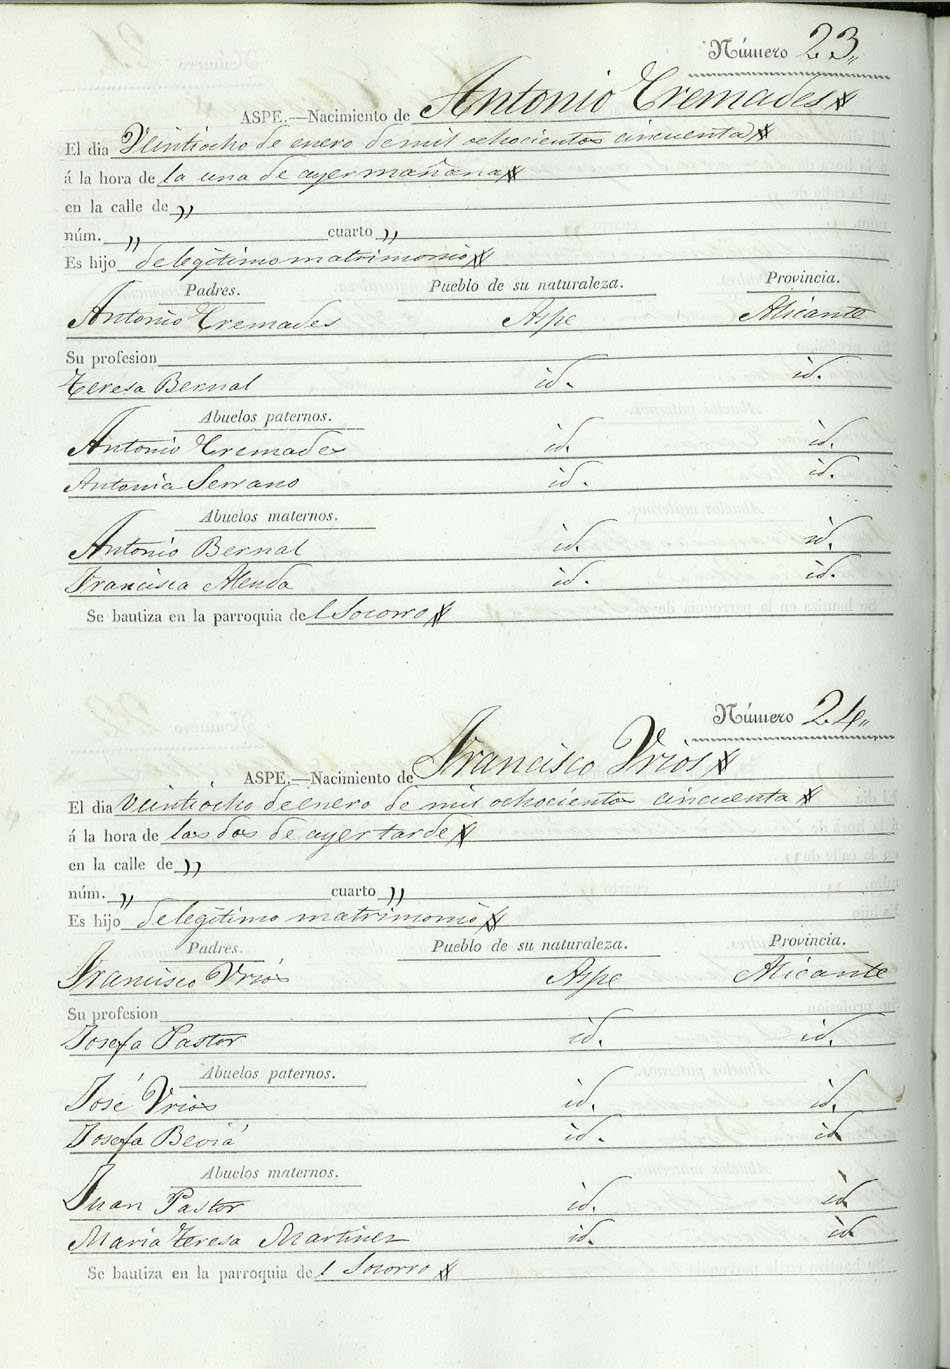 Número 23„
ASPE.—Nacimiento de Antonio Cremades
El dia Veintiocho de enero de mil ochocientos cincuenta
á la hora de la una de ayer mañana
en la calle de „
núm. „ cuarto „
Es hijo de legítimo matrimonio
Padres. Pueblo de su naturaleza. Provincia.
Antonio Cremades Aspe Alicante
Su profesion
Teresa Bernal id. id.
Abuelos paternos.
Antonio Cremades id. id.
Antonia Serrano id. id.
Abuelos maternos.
Antonio Bernal id. id.
Francisca Alenda id. id.
Se bautiza en la parroquia del Socorro
Número 24„
ASPE.—Nacimiento de Francisco Vrios
El dia veintiocho de enero de mil ochocientos cincuenta
á la hora de las dos de ayer tarde
en la calle de „
núm. „ cuarto „
Es hijo de legítimo matrimonio
Padres. Pueblo de su naturaleza. Provincia.
Francisco Vrios Aspe Alicante
Su profesion
Josefa Pastor id. id.
Abuelos paternos.
José Vrios id. id.
Josefa Beviá id. id.
Abuelos maternos.
Juan Pastor id. id.
Maria Teresa Martinez id. id.
Se bautiza en la parroquia del Socorro